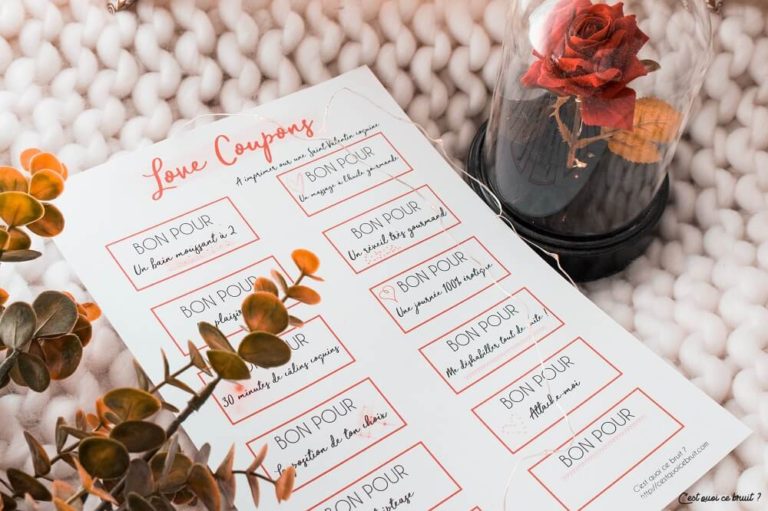 Love Coupons
A imprimer pour une Saint-Valentin coquine
BON POUR
Un bain moussant à 2
BON POUR
plaisir
BON POUR
30 minutes de câlins coquins
BON POUR
position de ton choix
BON POUR
BON POUR
Un massage à l'huile gourmande
BON POUR
Un réveil très gourmand
BON POUR
Une journée 100% érotique
BON POUR
Me déshabiller tout de suite !
BON POUR
Attache-moi
BON POUR
C'est quoi ce bruit ?
http://cestquoicebruit.com
C'est quoi ce bruit ?